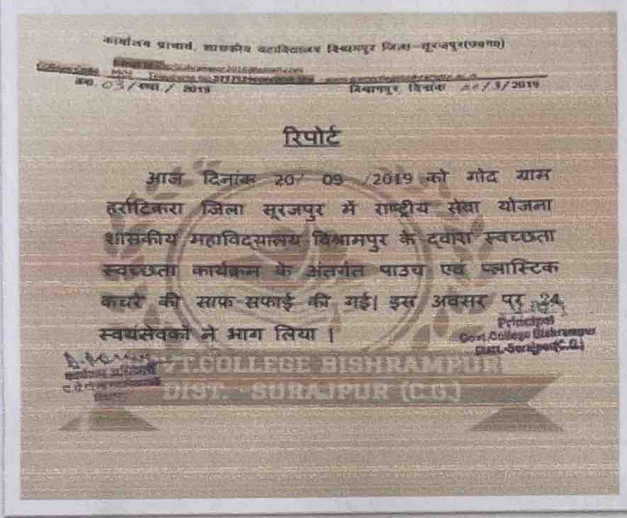 कार्यालय प्राचार्य, शासकीय महाविद्यालय विश्रामपुर जिला-सूरजपुर(छ०ग०)
03/ /2019 विश्रामपुर, दिनांक /2019
रिपोर्ट
आज दिनांक 20/ 09 /2019 को गोद ग्राम
हर्राटिकरा जिला सूरजपुर में राष्ट्रीय सेवा योजना
शासकीय महाविद्यालय विश्रामपुर के द्वारा स्वच्छता
स्वच्छता कार्यक्रम के अंतर्गत पाउच एवं प्लास्टिक
कचरे की साफ़ सफाई की गई| इस अवसर पर 34
स्वयंसेवकों ने भाग लिया |
Principal
Govt.College Bishrampur
Distt.-Surajpur(C.G.)
GOVT.COLLEGE BISHRAMPUR
DIST. - SURAJPUR (C.G.)